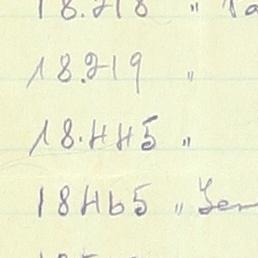 18.218 "
18.219 "
18.445 "
18465 "